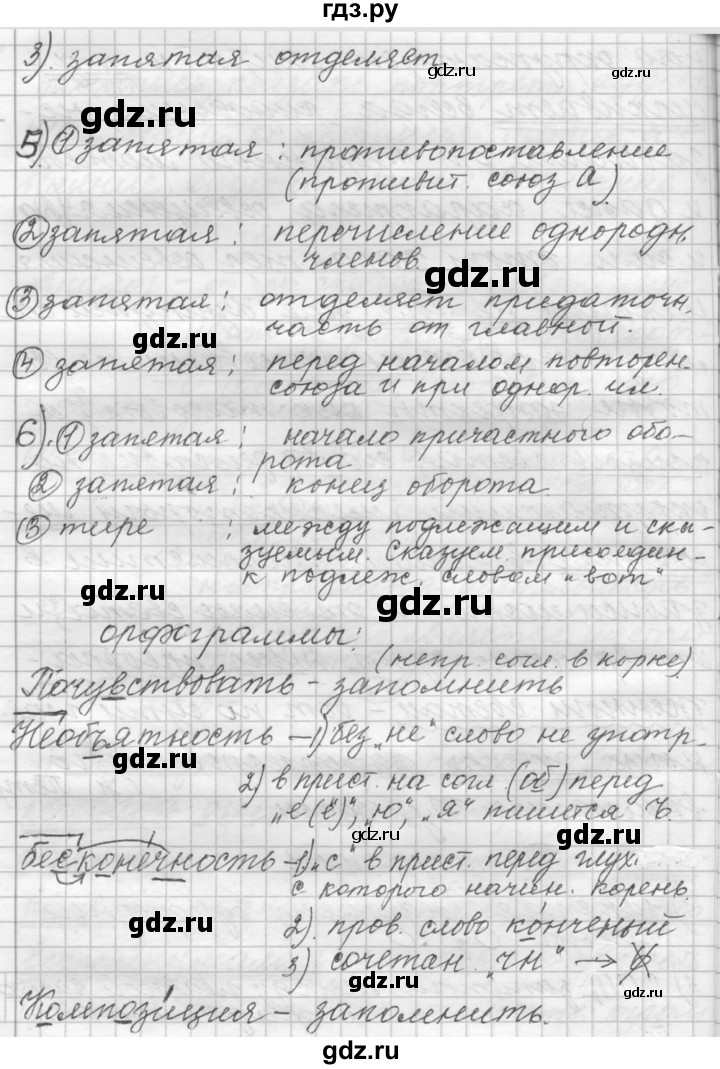 гдз.ру
3). запятая отделяет
gdz.ru gdz.ru
gdz.ru
5) ① запятая : противопоставление
(противит. союз А).
② запятая : перечисление однородн.
членов.
gdz.ru
③ запятая : отделяет придаточн.
часть от главной.
gdz.ru
④ запятая : перед началом повторен.
союза и при однор. чл.
6). ① запятая : начало причастного обо-
рота
② запятая : конец оборота.
③ тире : между подлежащим и ска-
зуемым. Сказуем. присоедин-
к подлеж. словом „вот“
gdz.ru
gdz.ru
орфограммы:
(непр. согл. в корне)
Почувствовать – запомнить
Необъятность – 1) без „не“ слово не употр.
gdz.ru
2) в прист. на согл (об) перед
„е (ё)“, „ю“, „я“ пишется Ъ.
gdz.ru
бесконечность – 1) „с“ в прист. перед глух.
с которого начин. корень.
gdz.ru
2). пров. слово ко́нченый
3) сочетан. „чн“ → Ь
gdz.ru
Композиция – запомнить.
gdz.ru
gdz.ru